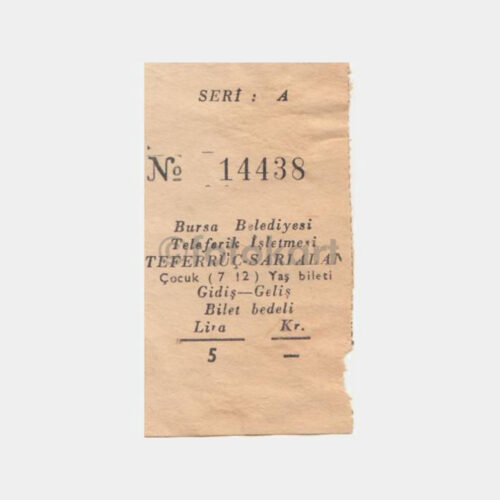 SERİ : A
No 14438
Bursa Belediyesi
Teleferik İşletmesi
TEFERRÜÇ-SARIALAN
Çocuk (7 12) Yaş bileti
Gidiş—Geliş
Bilet bedeli
Lira Kr.
5 —